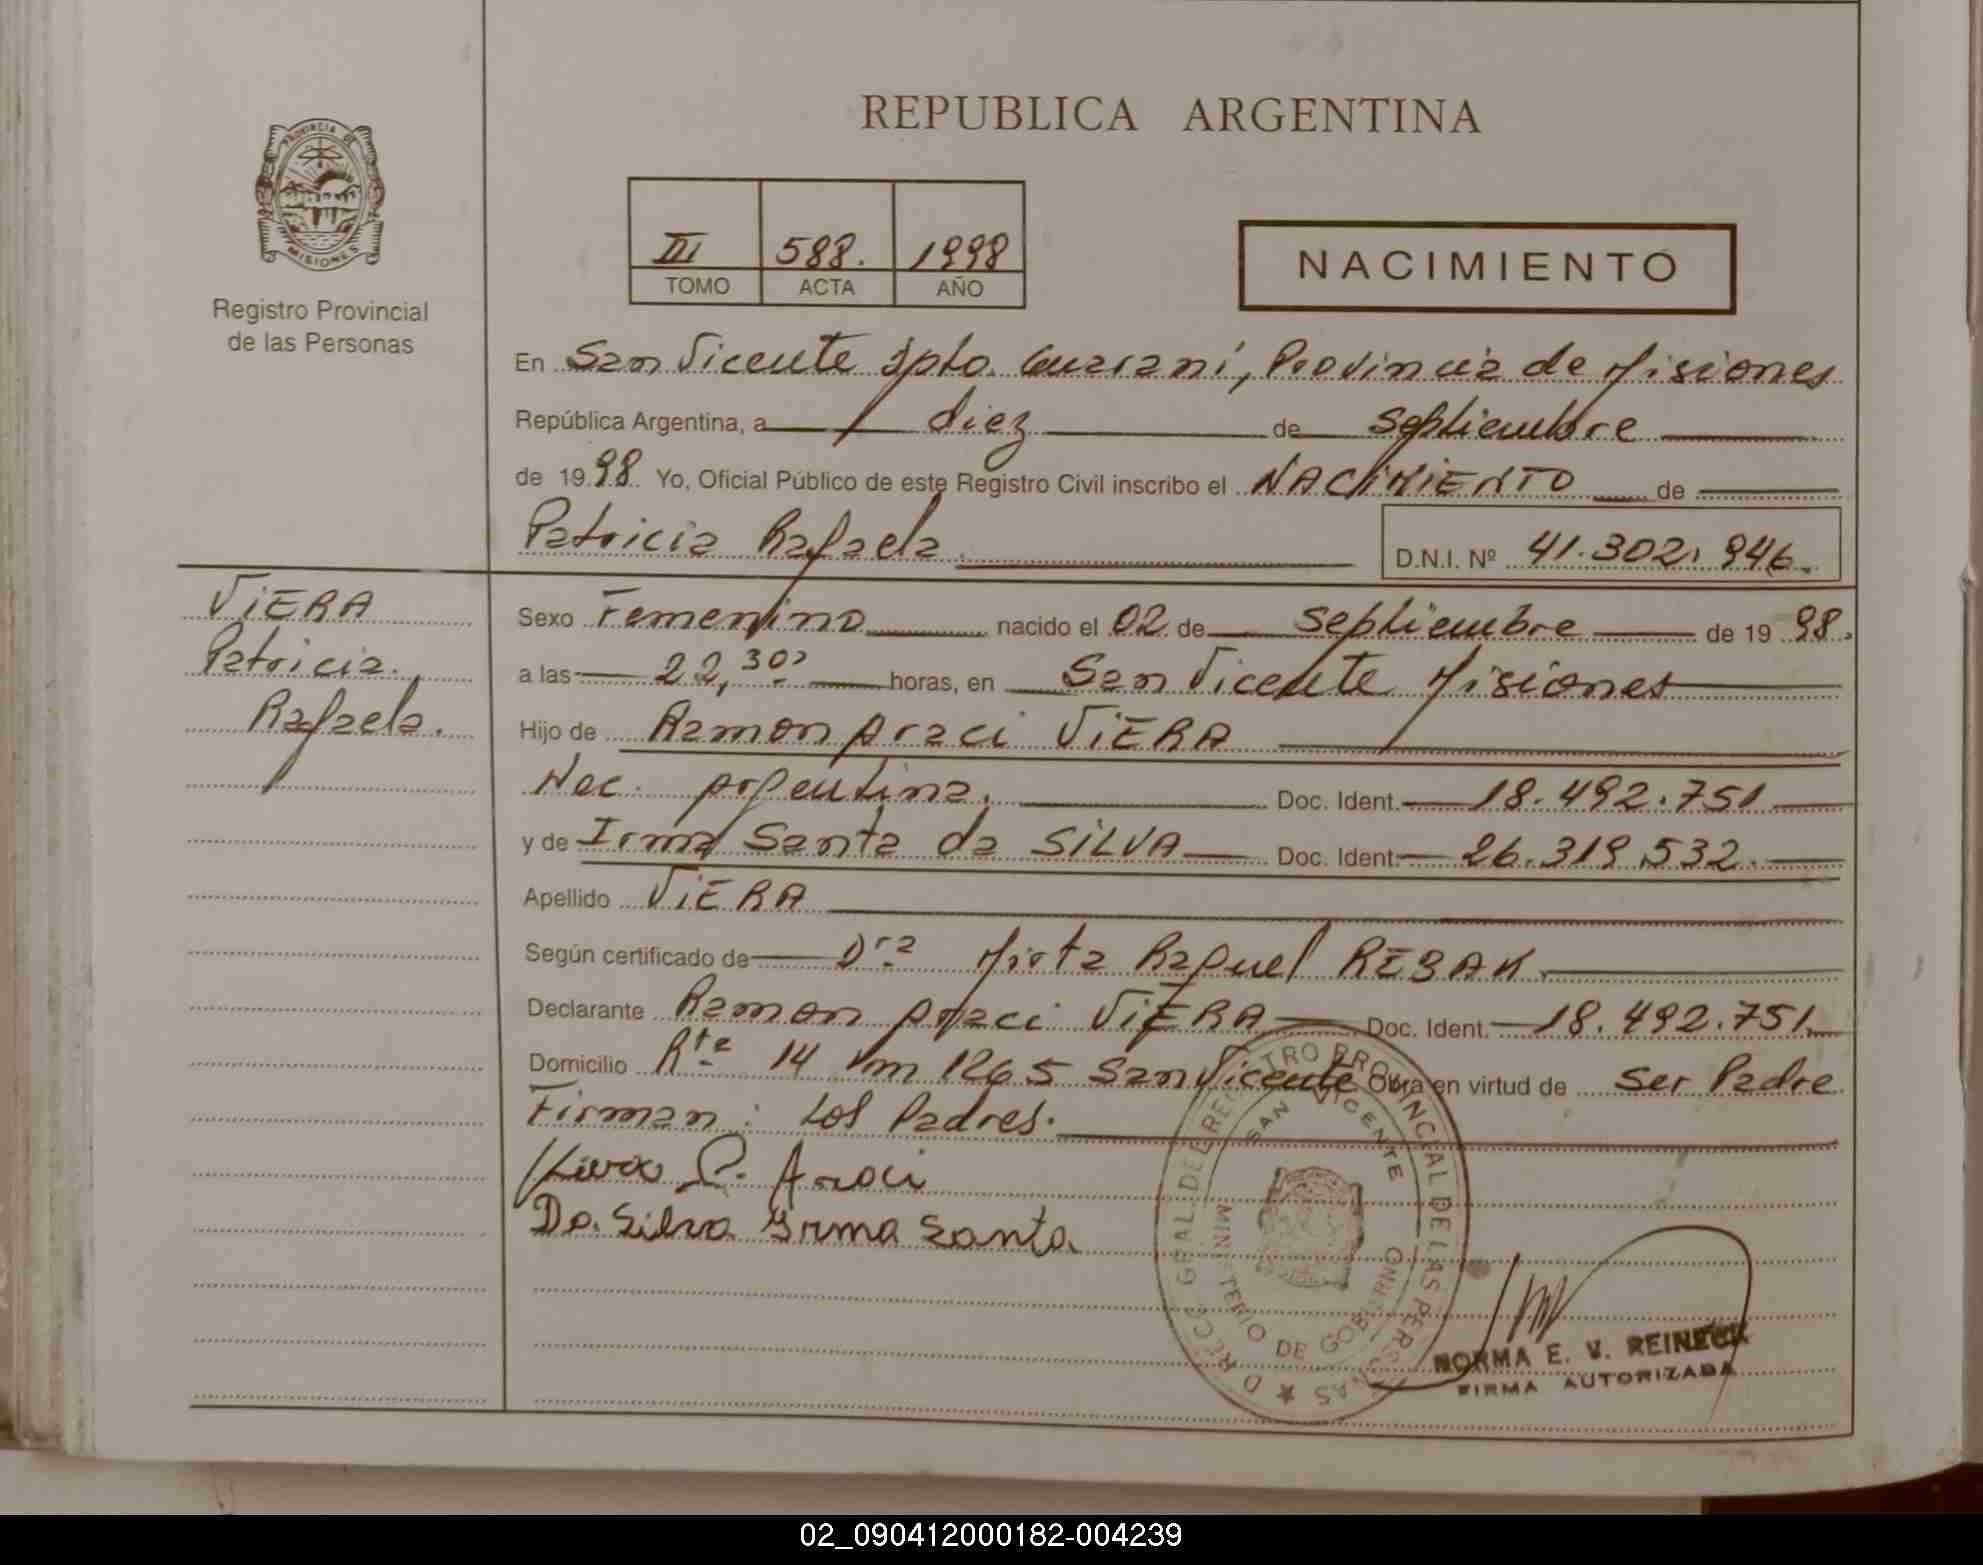 REPUBLICA ARGENTINA
PROVINCIA DE
MISIONES
Registro Provincial
de las Personas
III 588. 1998
TOMO ACTA AÑO
NACIMIENTO
En San Vicente Dpto. Guaraní, Provincia de Misiones
República Argentina, a diez de Septiembre
de 1998 Yo, Oficial Público de este Registro Civil inscribo el NACIMIENTO de
Patricia Rafaela. D.N.I. Nº 41.302.946.
VIERA
Patricia.
Rafaela.
Sexo Femenino nacido el 02 de Septiembre de 1998.
a las 22,30 horas, en San Vicente Misiones
Hijo de Ramon Araci VIERA
Nac. Argentina. Doc. Ident. 18.492.751
y de Irma Santa da SILVA Doc. Ident. 26.319.532.
Apellido VIERA
Según certificado de Dra Mirta Raquel REBAK
Declarante Ramon Araci VIERA Doc. Ident. 18.492.751.
Domicilio Rta 14 Km 1265 San Vicente Obra en virtud de Ser Padre
Firman: Los Padres.
R. Araci
Da. Silva Irma Santa
DIRECC. GRAL. DEL REGISTRO PROVINCIAL DE LAS PERSONAS
SAN VICENTE
MINISTERIO DE GOBIERNO
NORMA E. V. REINECK
FIRMA AUTORIZADA
02_090412000182-004239